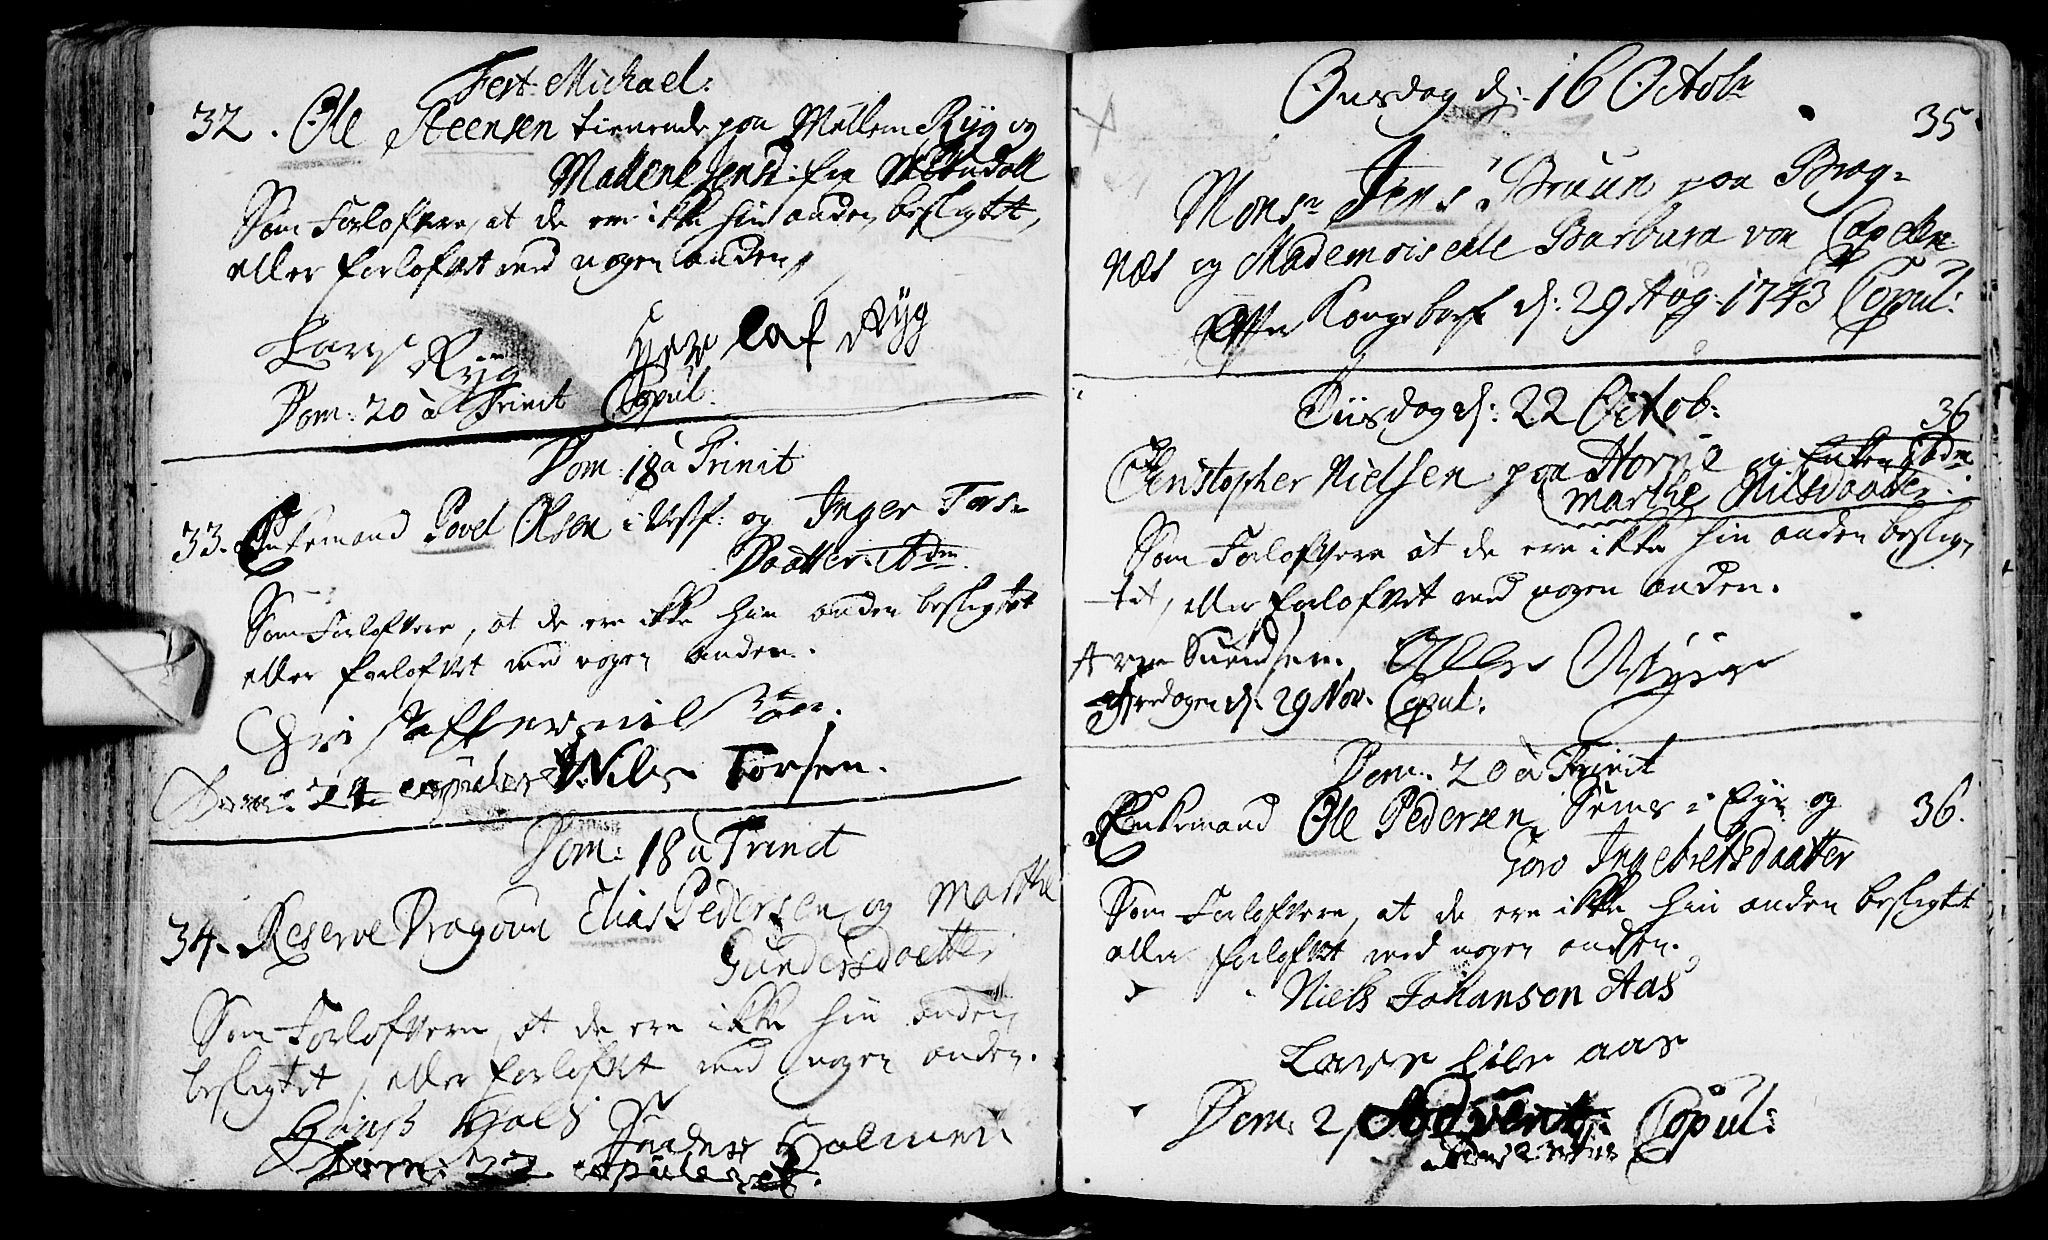 Fest: Michael:
32. Ole Steensen tienende paa Mellem Ryg og
Madlene Jensd: fra
Som Forlofvere, at de ere ikke hin anden beslegtet,
eller forlofvet med nogen anden,
Lars Ryg
Hans Laf Ryg
Dom: 20 à Trinit Copul:
Dom: 18 à Trinit
33. Enkemand Povel Olsen i Vestf: og Inger Tors-
Daatter. Adm
Som Forlofvere, at de ere ikke hin anden beslegtet
eller forlofvet med nogen anden.
Christoffer nilsøn.
Dom: 24 copuleret Nils Torsen.
Dom: 18 à Trinit
34. Reserve Dragoun Elias Pedersen og Marthe
Gundersdaatter
Som Forlofvere, at de ere ikke hin anden,
beslegtet, eller forlofvet med nogen anden.
Peder Holmen
Dom: 22 copuleret.
Onsdag d: 16 Octobr
35
Monsr Jens Bruun paa Brag-
næs og Mademoiselle Barbara von Capelen
Efter Konge bref d: 29 Aug. 1743 Copul:
Tiisdag d: 22 Octob:
36
Christopher Nielsen paa Horne og Enken Adm
Marthe Nilsdaatter
Som Forlofvere at de ere ikke hin anden besleg-
tet, eller forlofvet med nogen anden.
Arne Suendsen.
Fredagen d: 29 Nov. Copul:
Dom: 20 à Trinit
Enkemand Ole Pedersen Sems i Eger og
36.
Goro Ingebretsdaatter
Som Forlofvere, at de ere ikke hin anden beslegtet
eller forlofvet med nogen anden.
Niels Johanson Aas
Lars aas
Dom. 2, Advent. Copul: